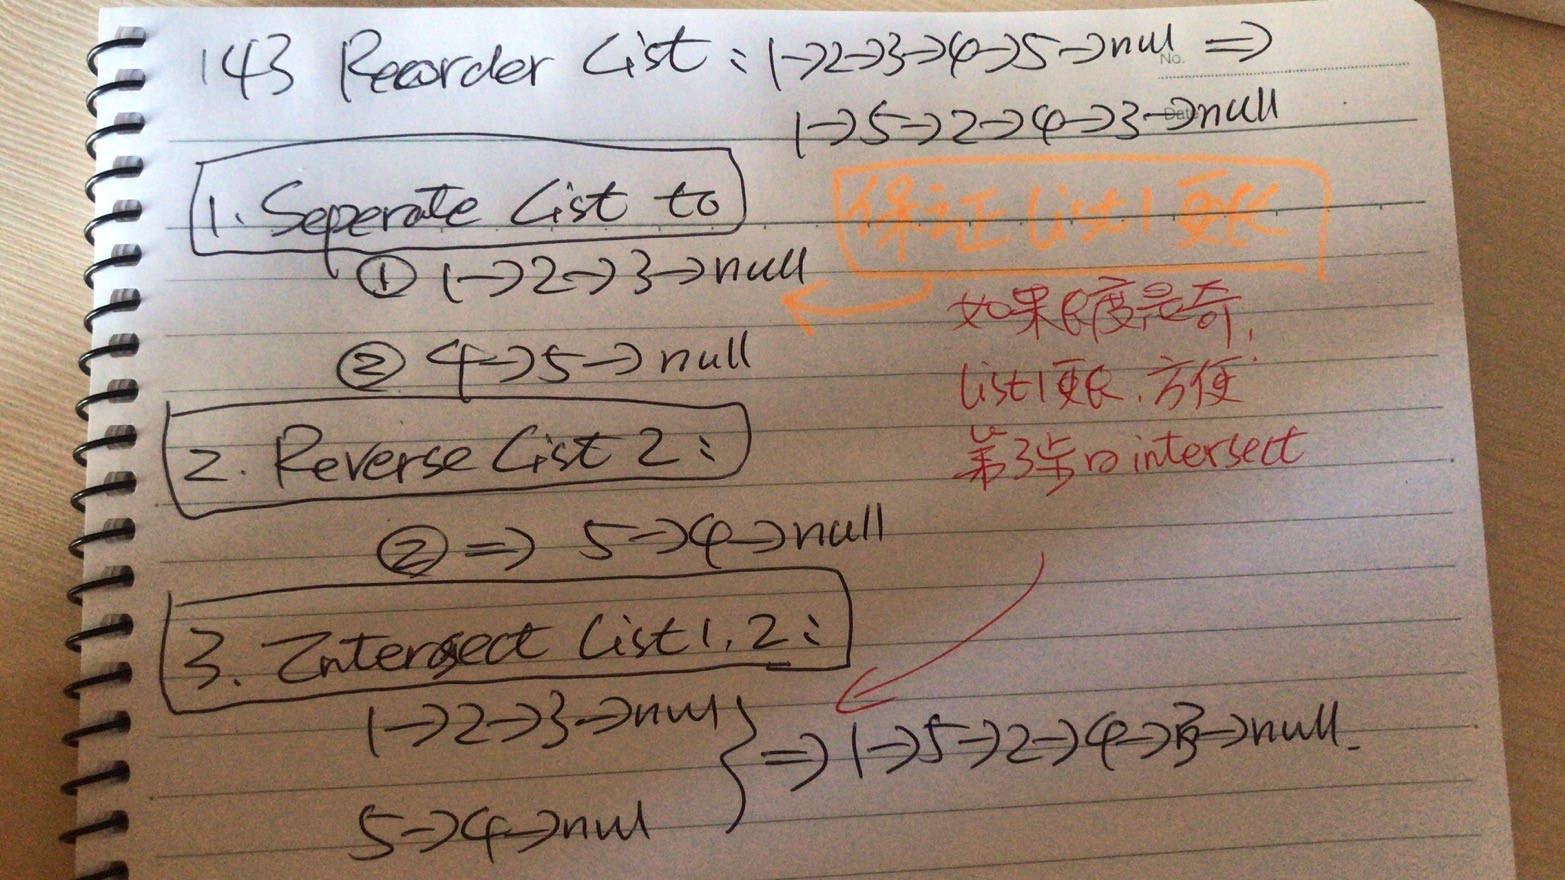 143 Reorder List : 1->2->3->4->5->null =>
No.
1->5->2->4->3->null
Date
1. Seperate List to
保证 list1更长
① 1->2->3->null
如果长度是奇,
② 4->5->null
list1更长.方便
2. Reverse List 2:
第3步的intersect
② => 5->4->null
3. Intersect List1,2:
1->2->3->null
} => 1->5->2->4->3->null.
5->4->null